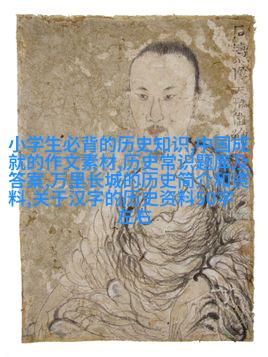 小学生必背的历史知识,中国成
就的作文素材,历史常识题库及
答案,万里长城的历史简介和资
料,关于汉字的历史资料50字
左右